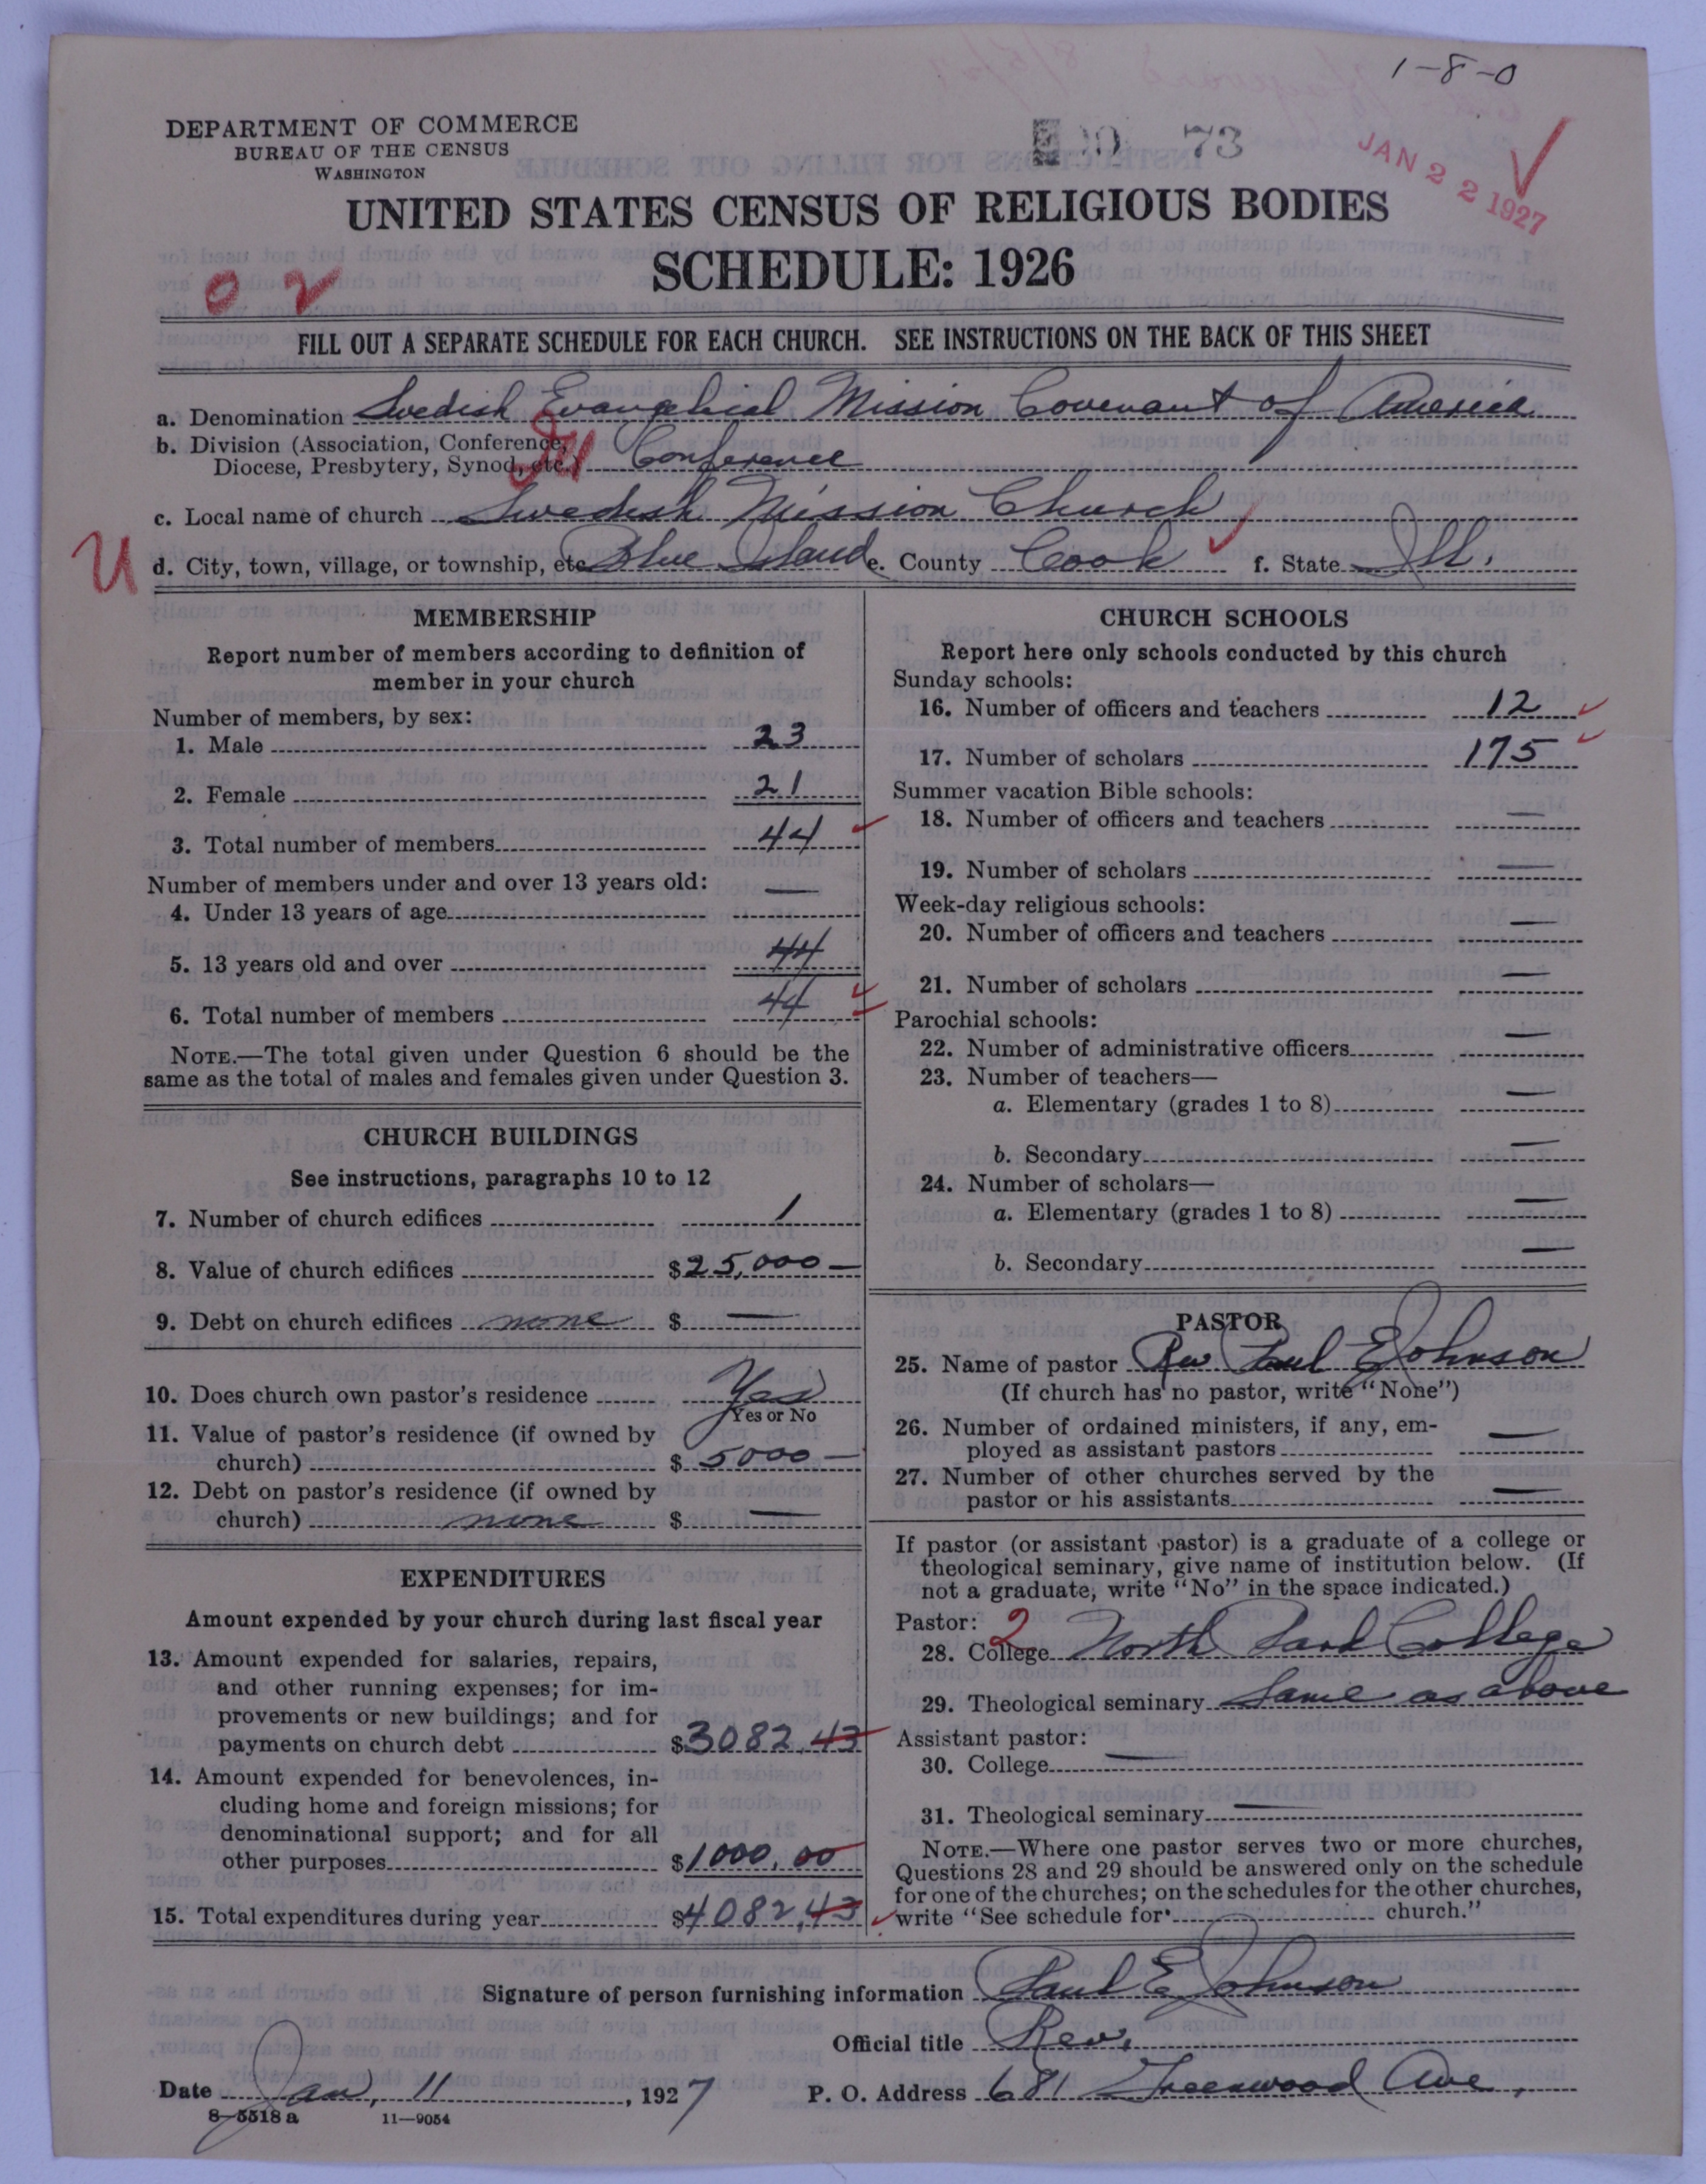 1-8-0
DEPARTMENT OF COMMERCE
BUREAU OF THE CENSUS
WASHINGTON
73
JAN 22 1927
UNITED STATES CENSUS OF RELIGIOUS BODIES
SCHEDULE: 1926
0 2
FILL OUT A SEPARATE SCHEDULE FOR EACH CHURCH. SEE INSTRUCTIONS ON THE BACK OF THIS SHEET
a. Denomination Swedish Evangelical Mission Covenant of America
b. Division (Association, Conference,
Diocese, Presbytery, Synod, etc.) Conference
c. Local name of church Swedish Mission Church
U
d. City, town, village, or township, etc. Blue Island e. County Cook f. State Ill.
MEMBERSHIP
Report number of members according to definition of
member in your church
Number of members, by sex:
1. Male 23
2. Female 21
3. Total number of members 44
Number of members under and over 13 years old:
4. Under 13 years of age —
5. 13 years old and over 44
6. Total number of members 44
NOTE.—The total given under Question 6 should be the
same as the total of males and females given under Question 3.
CHURCH BUILDINGS
See instructions, paragraphs 10 to 12
7. Number of church edifices 1
8. Value of church edifices $25,000—
9. Debt on church edifices none $ —
10. Does church own pastor's residence Yes
Yes or No
11. Value of pastor's residence (if owned by
church) $ 5000—
12. Debt on pastor's residence (if owned by
church) none $ —
EXPENDITURES
Amount expended by your church during last fiscal year
13. Amount expended for salaries, repairs,
and other running expenses; for im-
provements or new buildings; and for
payments on church debt $3082.43
14. Amount expended for benevolences, in-
cluding home and foreign missions; for
denominational support; and for all
other purposes $1000.00
15. Total expenditures during year $4082.43
CHURCH SCHOOLS
Report here only schools conducted by this church
Sunday schools:
16. Number of officers and teachers 12
17. Number of scholars 175
Summer vacation Bible schools:
18. Number of officers and teachers —
19. Number of scholars —
Week-day religious schools:
20. Number of officers and teachers —
21. Number of scholars —
Parochial schools:
22. Number of administrative officers —
23. Number of teachers—
a. Elementary (grades 1 to 8) —
b. Secondary —
24. Number of scholars—
a. Elementary (grades 1 to 8) —
b. Secondary —
PASTOR
25. Name of pastor Rev Paul E Johnson
(If church has no pastor, write "None")
26. Number of ordained ministers, if any, em-
ployed as assistant pastors —
27. Number of other churches served by the
pastor or his assistants —
If pastor (or assistant pastor) is a graduate of a college or
theological seminary, give name of institution below. (If
not a graduate, write "No" in the space indicated.)
Pastor: 2
28. College North Park College
29. Theological seminary Same as above
Assistant pastor:
30. College —
31. Theological seminary —
NOTE.—Where one pastor serves two or more churches,
Questions 28 and 29 should be answered only on the schedule
for one of the churches; on the schedules for the other churches,
write "See schedule for church."
Signature of person furnishing information Paul E Johnson
Official title Rev.
Date Jan, 11, 1927 P. O. Address 681 Greenwood Ave.
8-5518 a 11—9054